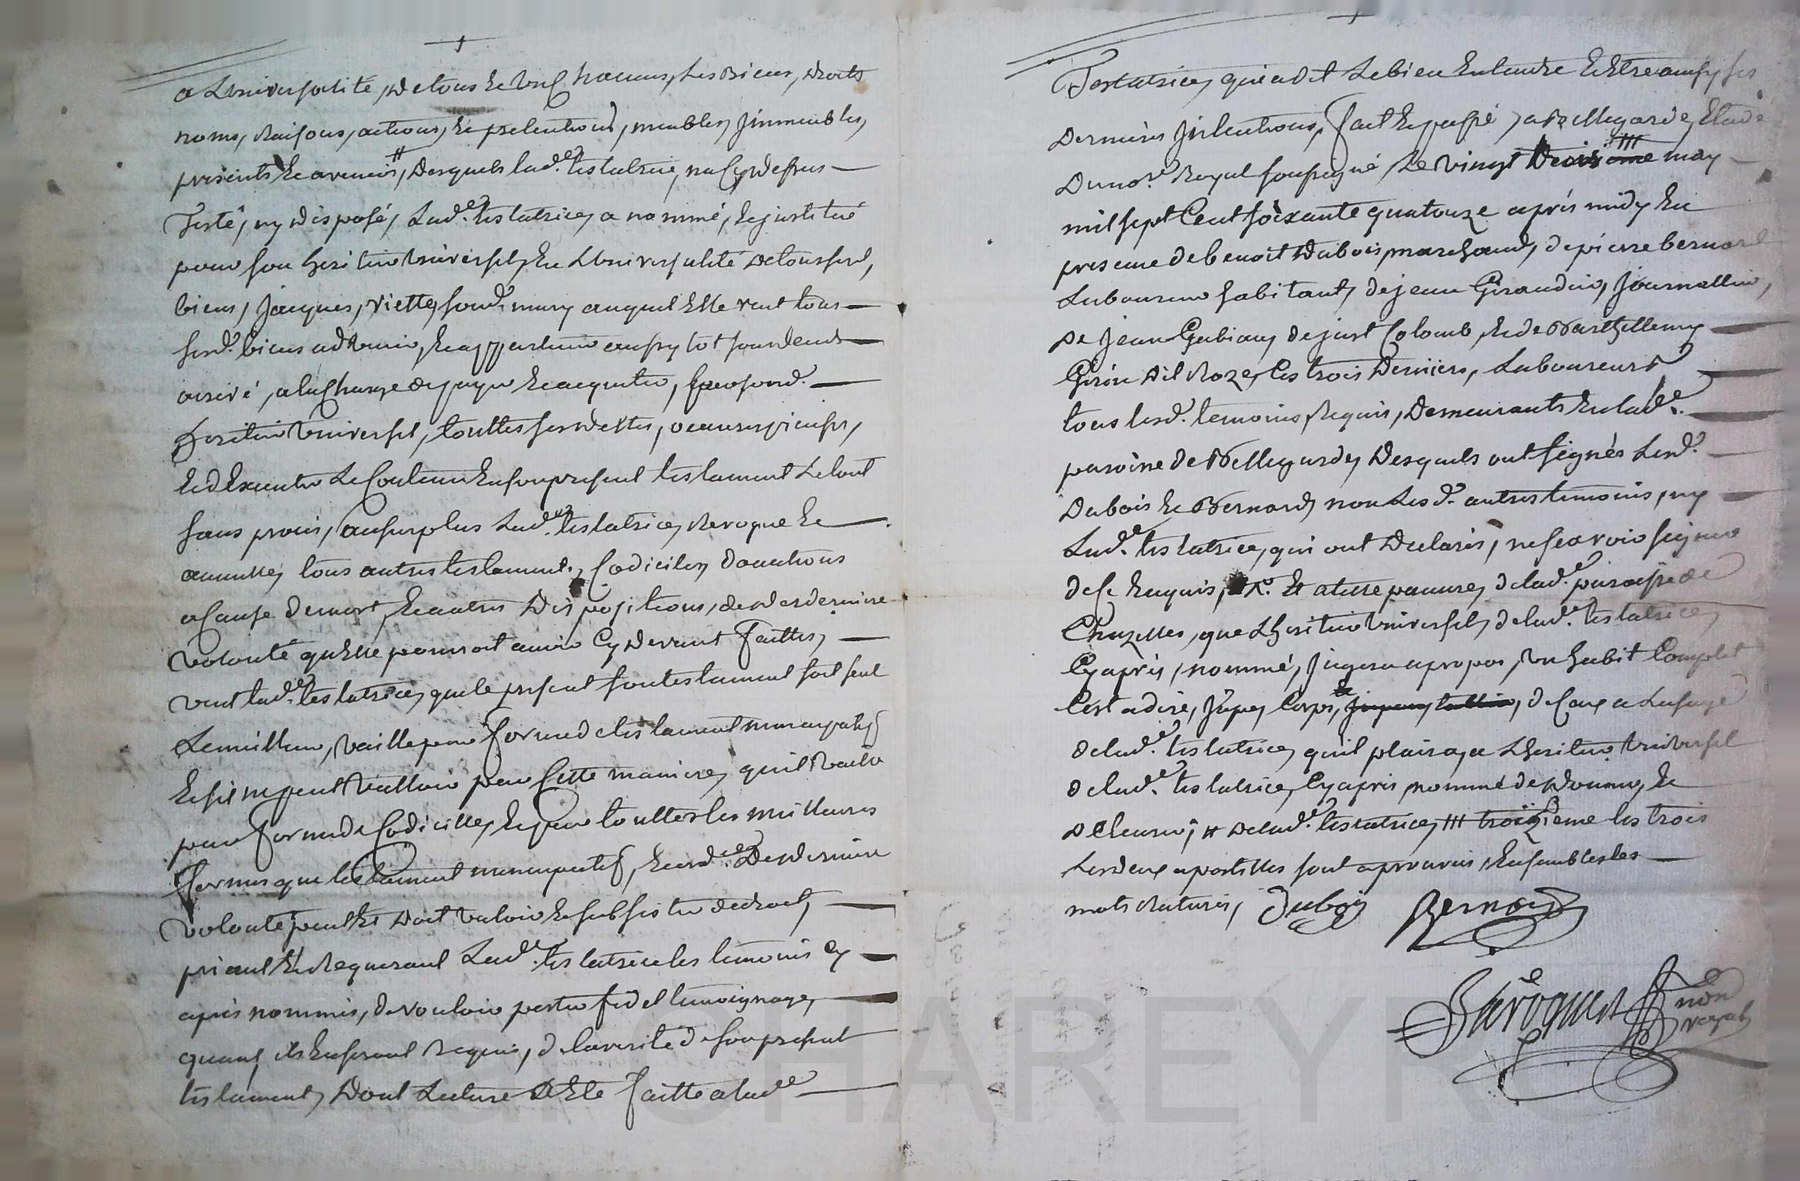 a Luniversalité, de tous et un chacuns, ses Biens, droits
noms, raisons, actions, et pretentions, meubles, jmmeubles,
presents et avenirs, desquels lad.e testatrice, na cy dessus
Testé, ny disposé, Lad.e testatrice, a nommé, et justitué
pour son heritier universel, en Luniversalité de tous sesd,
biens, jacques, viette, son d. mary auquel Elle veut tous
sesd. biens advenir, et appartenir aussy tot son deceds
arrivé, a la charge de payer et acquiter, par sond.
heritier universel, touttes ses dettes,
et dExecuter Le Contenu En son present testament Le tout
sans procès, au surplus Lad.e testatrice, Revoque et
annulle, tous autres testaments, Codiciles, donnations
a Cause de mort, et autres Dispositions, de derniere
volonté quElle pourroit avoir cy devant faittes,
veut lad.e testatrice, que le present son testament soit seul
Le meilleur, vaille pour forme de testament nuncupatif
Et sil ne peut valloir pour cette maniere, quil vaille
pour forme de Codicille, et pour touttes les meilleures
formes que testament nuncupatif, et ord.ce de derniere
volonté peut et doit valoir et subsister de droit,
priant Et Requerant Lad.e testatrice les temoins cy
après nommés, de vouloir porter fidel temoignage,
quant ils En seront Requis, de la verité de son present
testament, dont Lecture a Eté faitte a lad.e
Testatrice, qui a dit Le bien Entendre Et Etre aussy ses
dernieres jntentions, fait et passé, a Bellegarde, Etude
du no.re Royal soussigné, Le vingt may
mil sept Cent soixante quatorze après midy En
presence de benoit Dubois, marchand, de pierre bernard
Laboureur habitant, de jean Giraudin, journallier,
de jean Gubian, de just Colomb, et de Barthellemy
Giron dit Roze, les trois derniers, Laboureurs
tous lesd. temoins, Requis, demeurants En lad.e
paroisse de Bellegarde, desquels ont signés Lesd.
Dubois et Bernard, non Lesd. autres temoins, ny
Lad.e testatrice, qui ont declarés, ne scavoir signer
de ce Enquis, Et autre pauvres, de lad.e paroisse de
Chazelles, que Lheritier universel, de lad.e testatrice,
cy après, nommé, jugera a propos, un habit Complet
Cest a dire, jupe, Corps, et de Care a Lusage
de lad.e testatrice, quil plaira a Lheritier universel
de lad.e testatrice, cy après, nommé de donner, et
delivrer; # de lad.e testatrice, ### troizieme les trois
Lesdeux apostilles sont aprouvés, Ensembles les
mots raturés, Dubois Bernard
non
royal